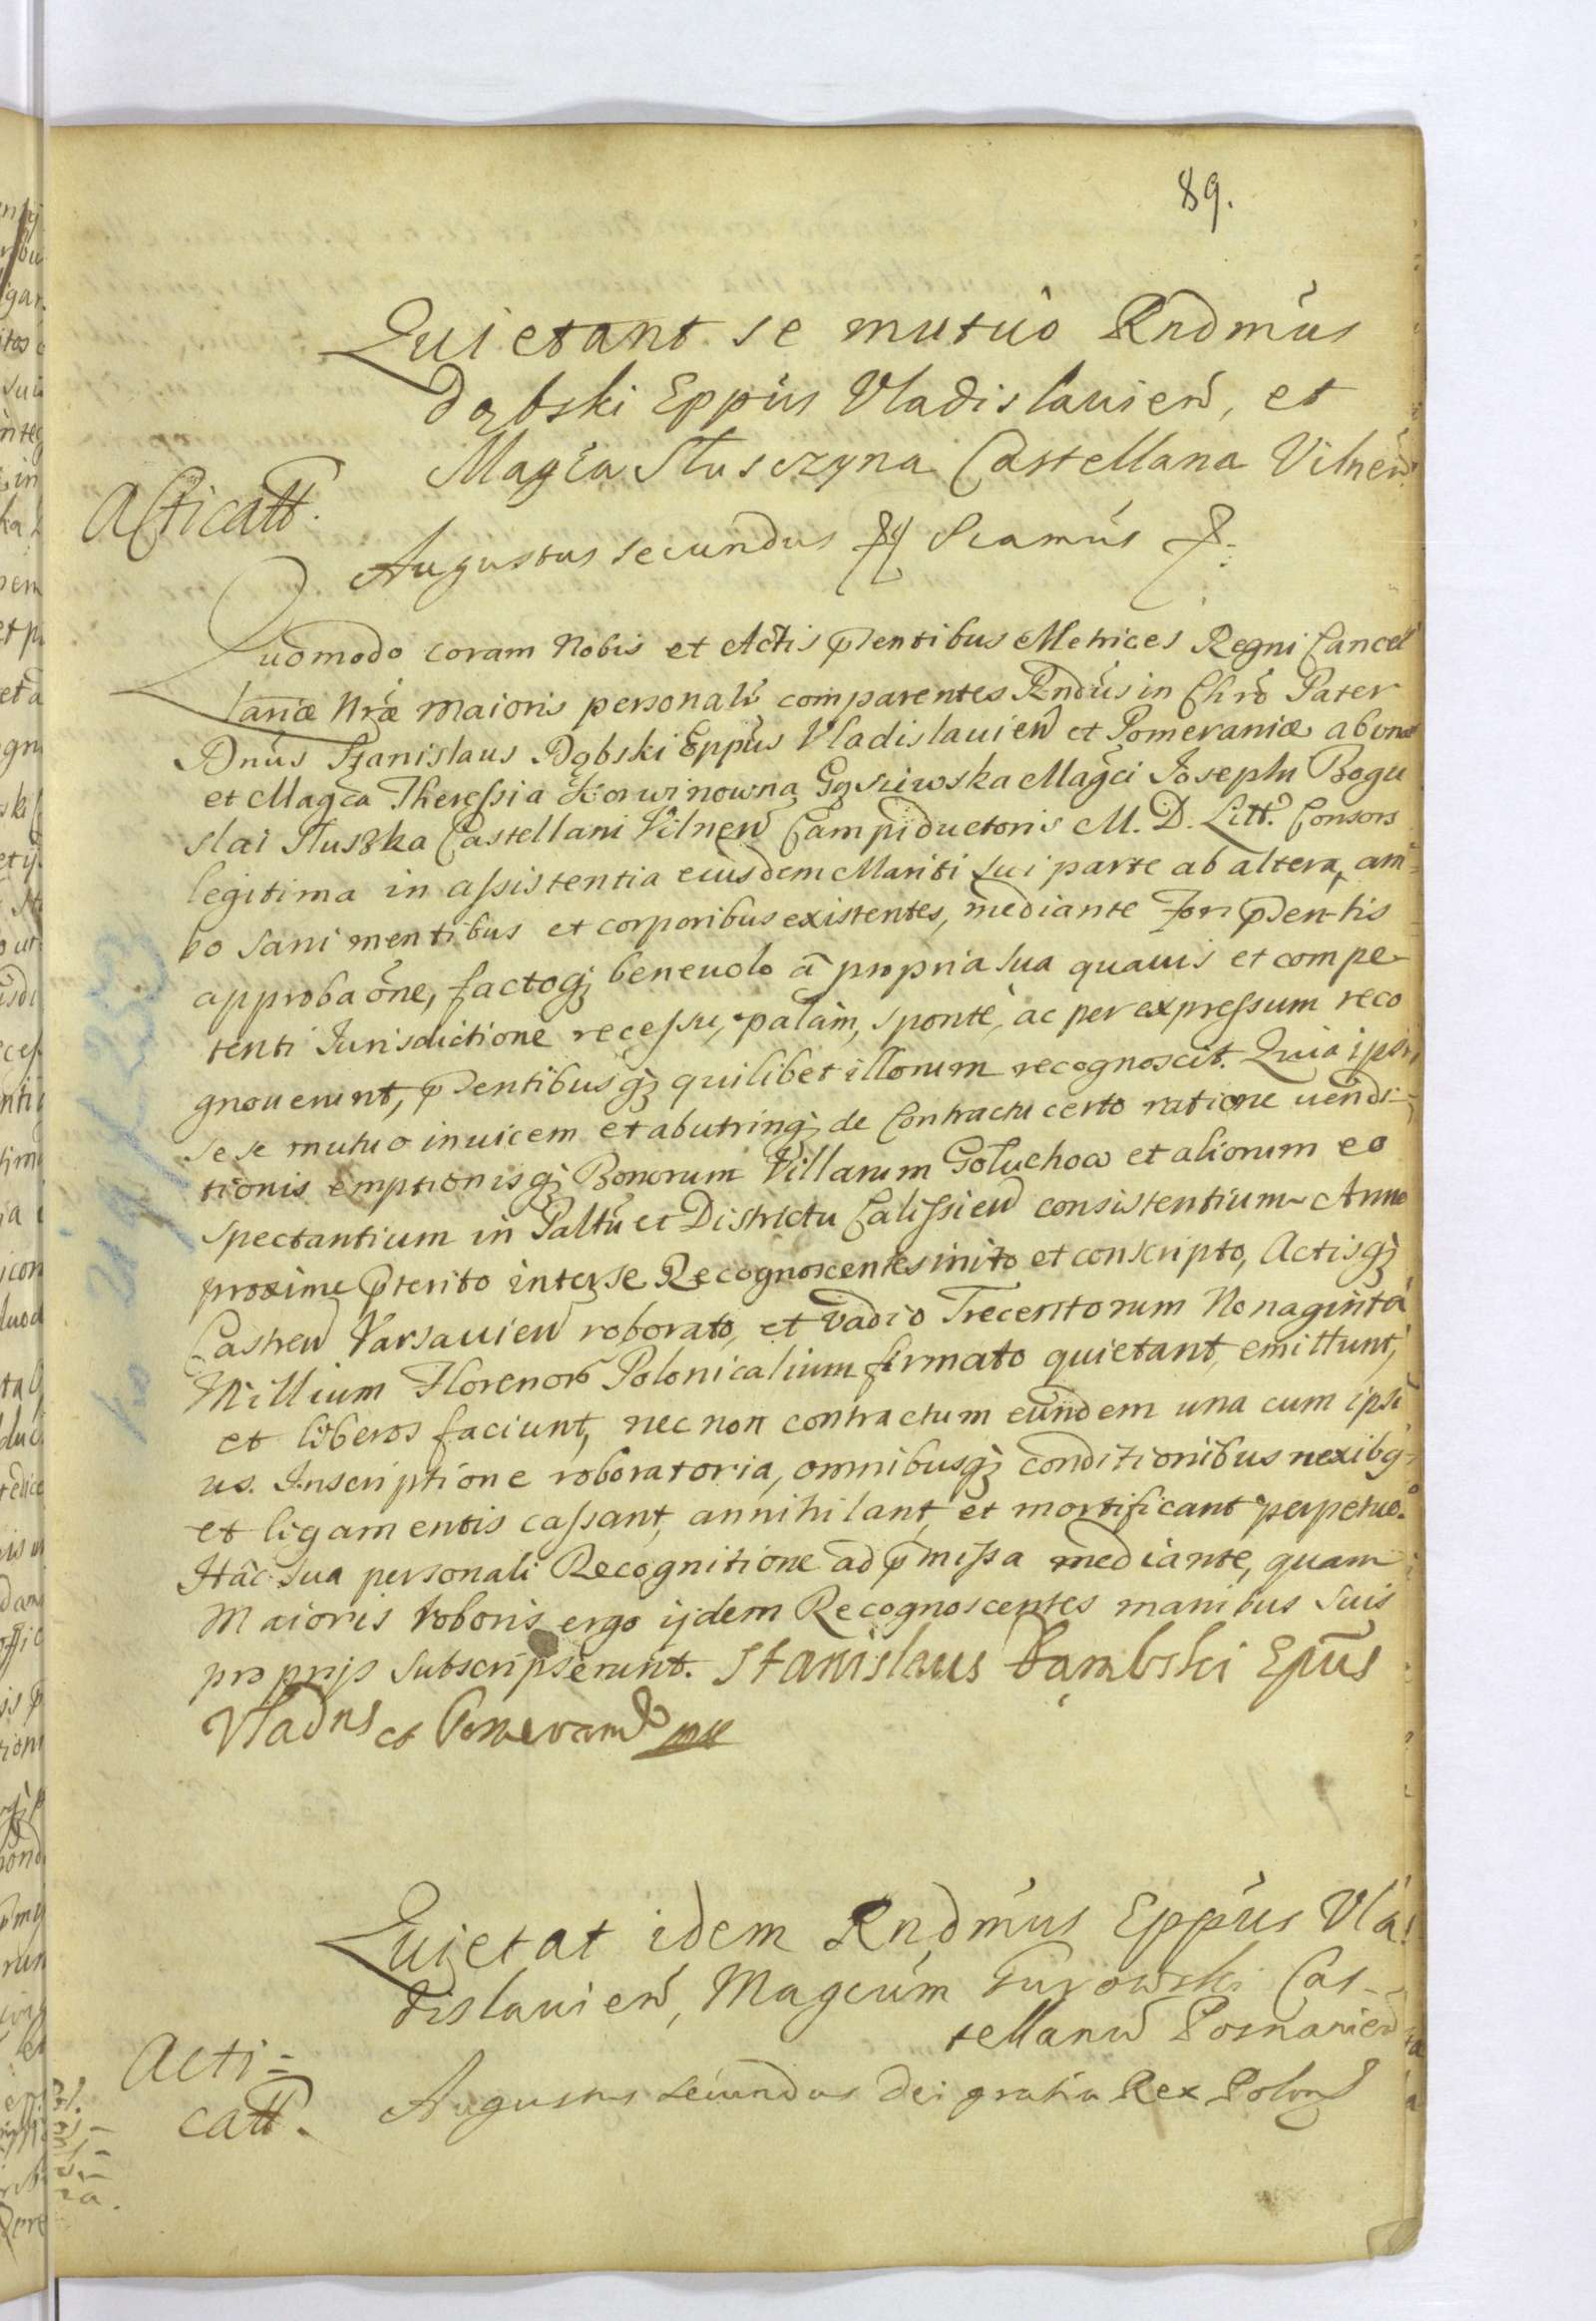 89.
Quietant se mutuo Rndmus
Dąbski Eppus Vladislauien, et
Magca Słusczyna Castellana Vilnen
Acticatt.
Augustus secundus Scamus
Quomodo coram Nobis et Actis pñtentibus Metrices Regni Cancel
lariæ Nræ maioris personalr comparentes Rndus in Chro Pater
Dnus Stanislaus Dąbski Eppus Vladislauien et Pomeraniæ ab una
et Magca Theressia Korwinowna Gąsiewska Magci Josephi Bogu
slai Słuszka Castellani Vilnen Campiductoris M. D. Litt. Consors
legitima in assistentia eiusdem Mariti sui parte ab altera, am=
bo sani mentibus et corporibus existentes, mediante Fori pñtentis
approbaone, factoq; beneuolo à propria sua quauis et compe
tenti Jurisdictione recessu, palàm, sponte, ac per expressum reco
gnouerunt, pñtentibusq; quilibet illorum recognoscit. Quia ipsi
sese mutuo inuicem et ab utrinq; de Contractu certo ratione uendi=
tionis emptionisq; Bonorum Villarum Gołuchow et aliorum eo
spectantium in Paltu et Districtu Calissien consistentium Anno
proxime pterito inter se Recognoscentes inito et conscripto, Actisq;
Castren Varsauien roborato, et vadio Trecentorum Nonaginta
Millium Florenor Polonicalium firmato quietant, emittunt,
et liberos faciunt, nec non contractum eundem una cum ipsi
us. Inscriptione roboratoria, omnibusq; conditionibus nexibq
et ligamentis cassant, annihilant, et mortificant perpetuo.
Hâc sua personali Recognitione ad pmissa mediante, quam
Maioris roboris ergo ijdem Recognoscentes manibus suis
proprijs subscripserunt. Stanislaus Dambski Epus
Vladns et Pomeran mp
Quietat idem Rndmus Eppus Vla
dislauien, Magcum Gurowski Cas-
tellanu Posnanien
Acti=
catt.
Augustus secundus Dei gratia Rex Polon